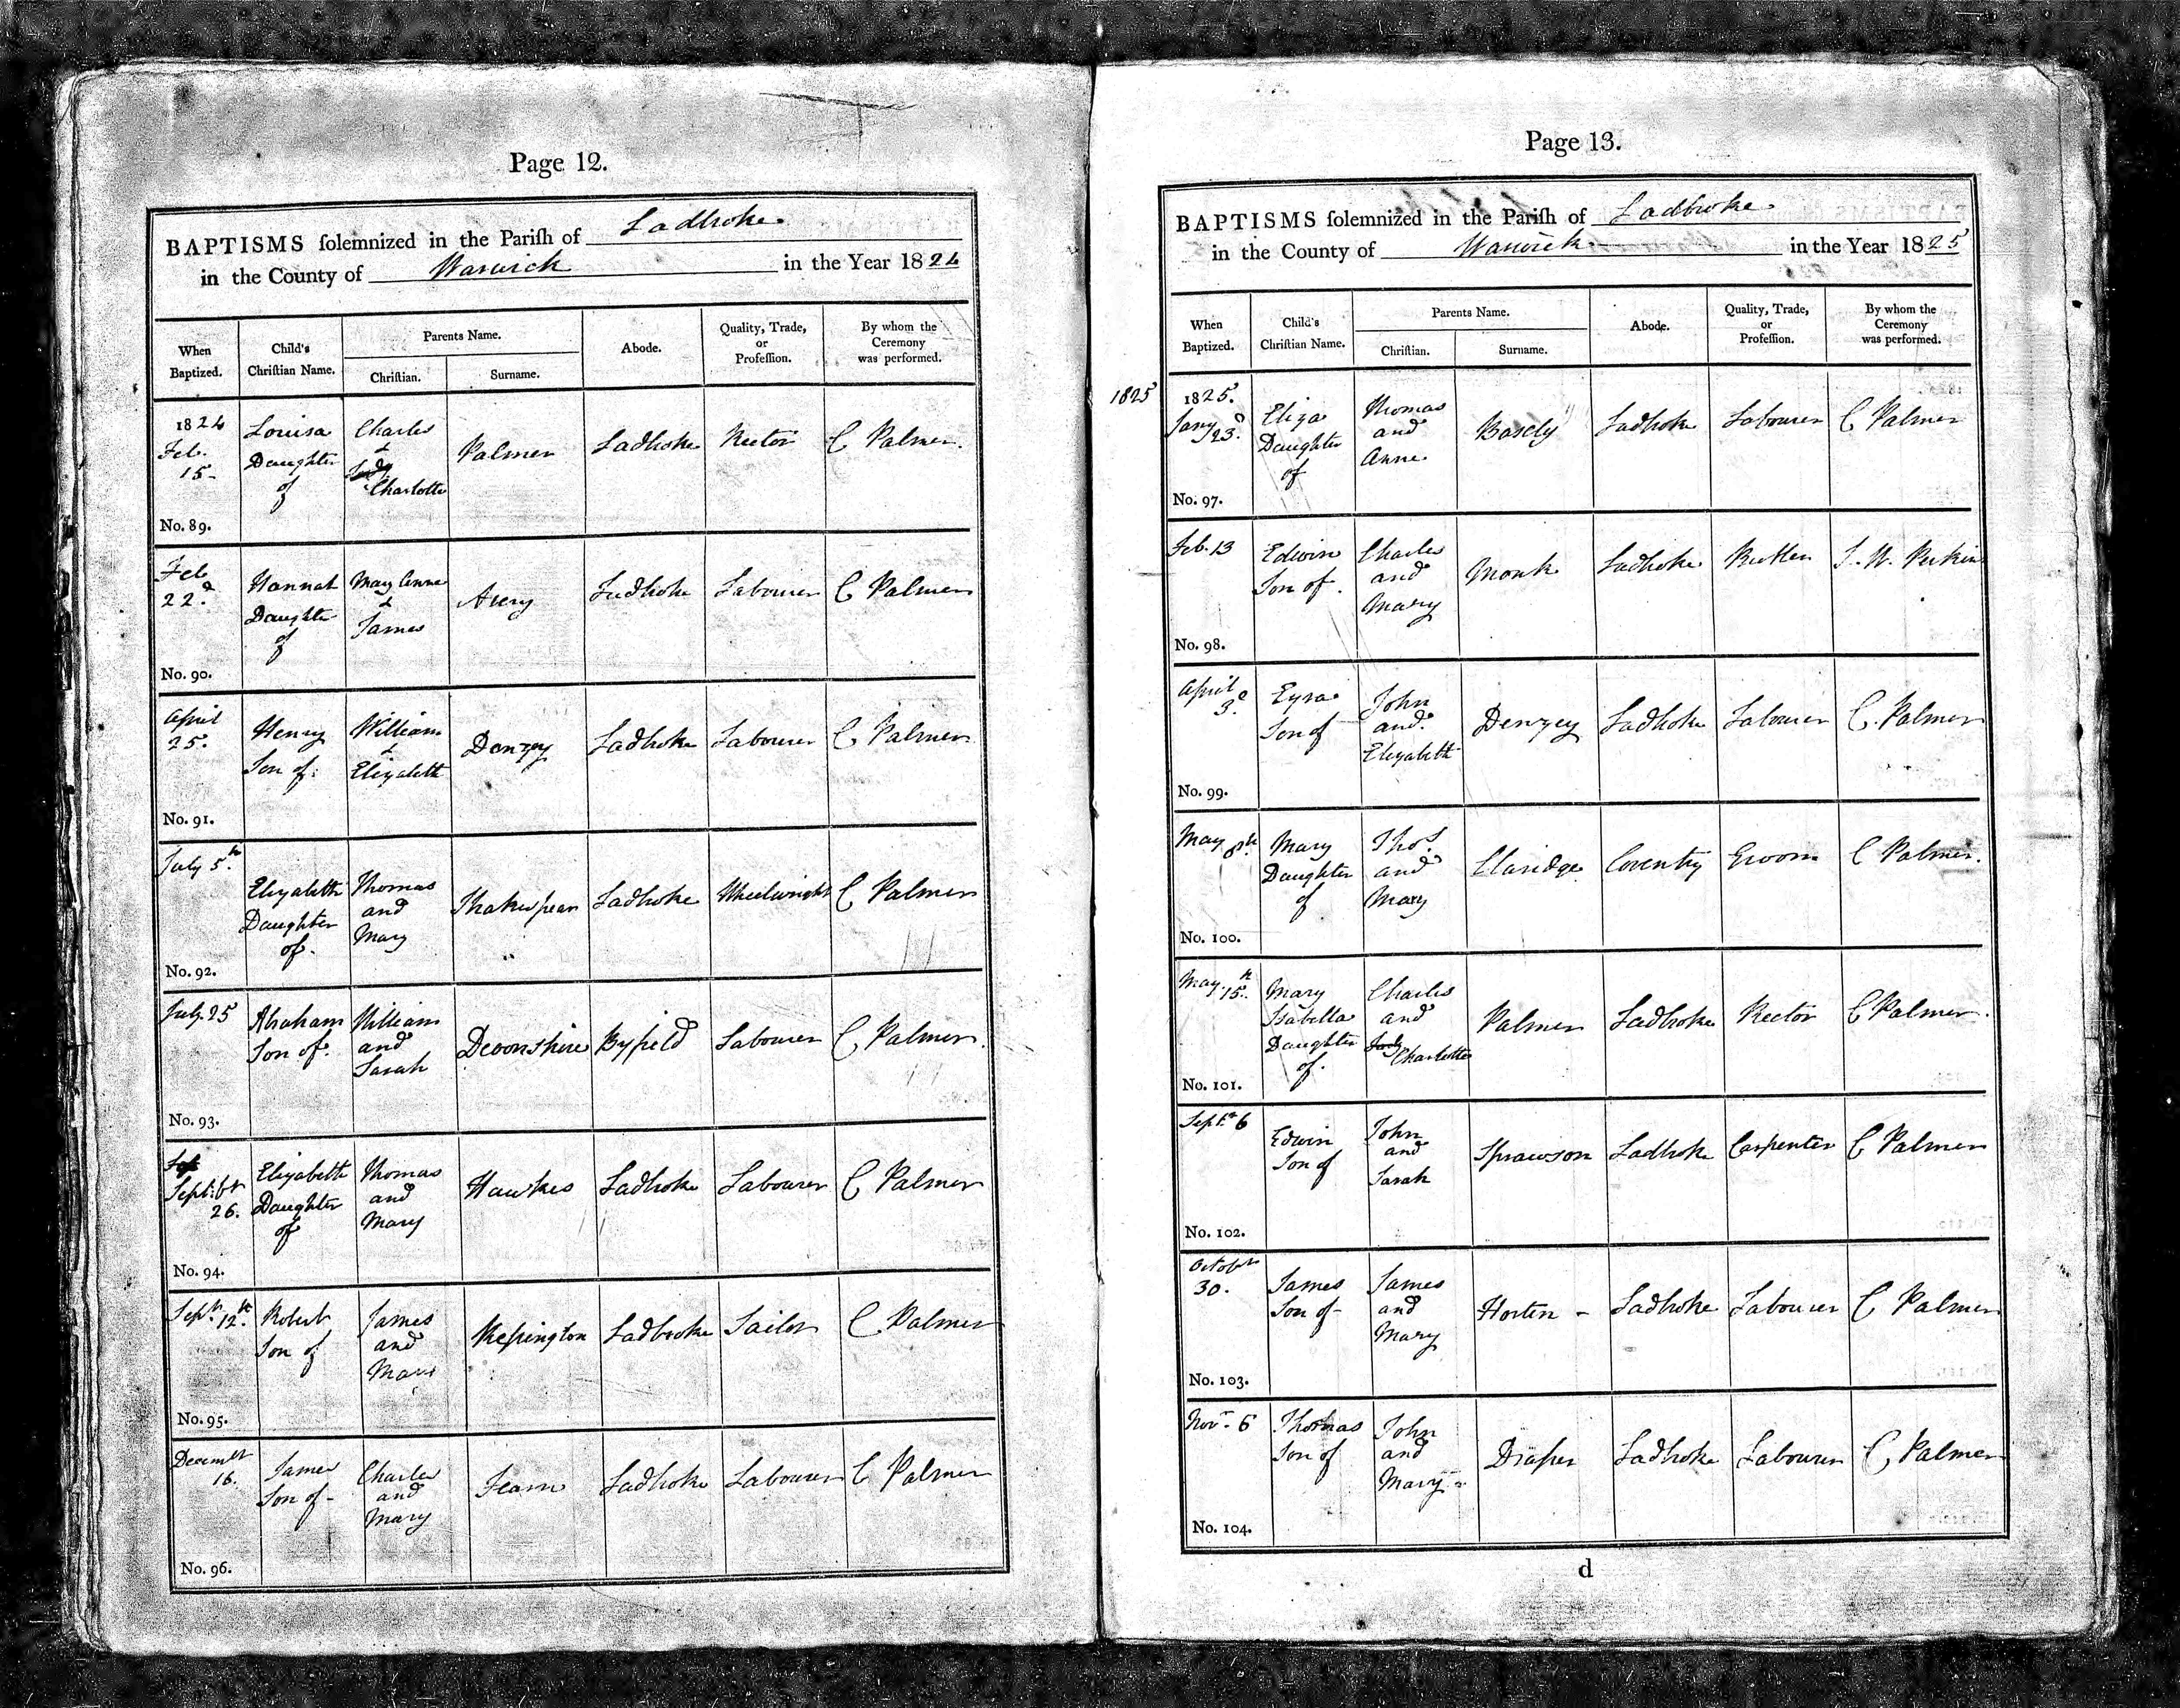 Page 12.
BAPTISMS solemnized in the Parish of Ladbroke
in the County of Warwick in the Year 1824
When Baptized.
Child's Christian Name.
Parents Name.
Christian.
Surname.
Abode.
Quality, Trade, or Profession.
By whom the Ceremony was performed.
1824 Feb. 15- Louisa Daughter of Charles & Lady Charlotte Palmer Ladbroke Rector C Palmer.
No. 89.
Feb 22d. Hannah Daughter of Mary Anne & James Avery Ladbroke Labourer C Palmer
No. 90.
April 25. Henry Son of: William & Elizabeth Denzey Ladbroke Labourer C Palmer
No. 91.
July 5th. Elizabeth Daughter of. Thomas and Mary Shakespear Ladbroke Wheelwright C Palmer
No. 92.
July 25 Abraham Son of. William and Sarah Devonshire Byfield Labourer C Palmer.
No. 93.
Septembr 26. Elizabeth Daughter of Thomas and Mary Hawkes Ladbroke Labourer C Palmer
No. 94.
Sepr. 12th. Robert Son of James and Mary Repington Ladbroke Tailor C Palmer
No. 95.
Decembr 16. James Son of- Charles and Mary Fearn Ladbroke Labourer C Palmer
No. 96.
Page 13.
BAPTISMS solemnized in the Parish of Ladbroke.
in the County of Warwick in the Year 1825
When Baptized.
Child's Christian Name.
Parents Name.
Christian.
Surname.
Abode.
Quality, Trade, or Profession.
By whom the Ceremony was performed.
1825
1825. Jany 23d. Eliza Daughter of Thomas and Anne. Basely Ladbroke Labourer C Palmer
No. 97.
Feb. 13 Edwin Son of. Charles and Mary Monk Ladbroke Butler S. W. Perkins
No. 98.
April 3d. Ezra Son of John and. Elizabeth Denzey Ladbroke Labourer C. Palmer
No. 99.
May 8th. Mary Daughter of Thos. and Mary Claridge Coventry Groom C Palmer.
No. 100.
May 15th. Mary Isabella Daughter of. Charles and Lady Charlotte Palmer Ladbroke Rector C Palmer.
No. 101.
Septr 6 Edwin Son of John and Sarah Sprawson Ladbroke Carpenter C Palmer
No. 102.
Octobr 30. James Son of- James and Mary Horten - Ladbroke Labourer C Palmer
No. 103.
Novr- 6 Thomas Son of John and Mary- Draper Ladbroke Labourer C Palmer
No. 104.
d